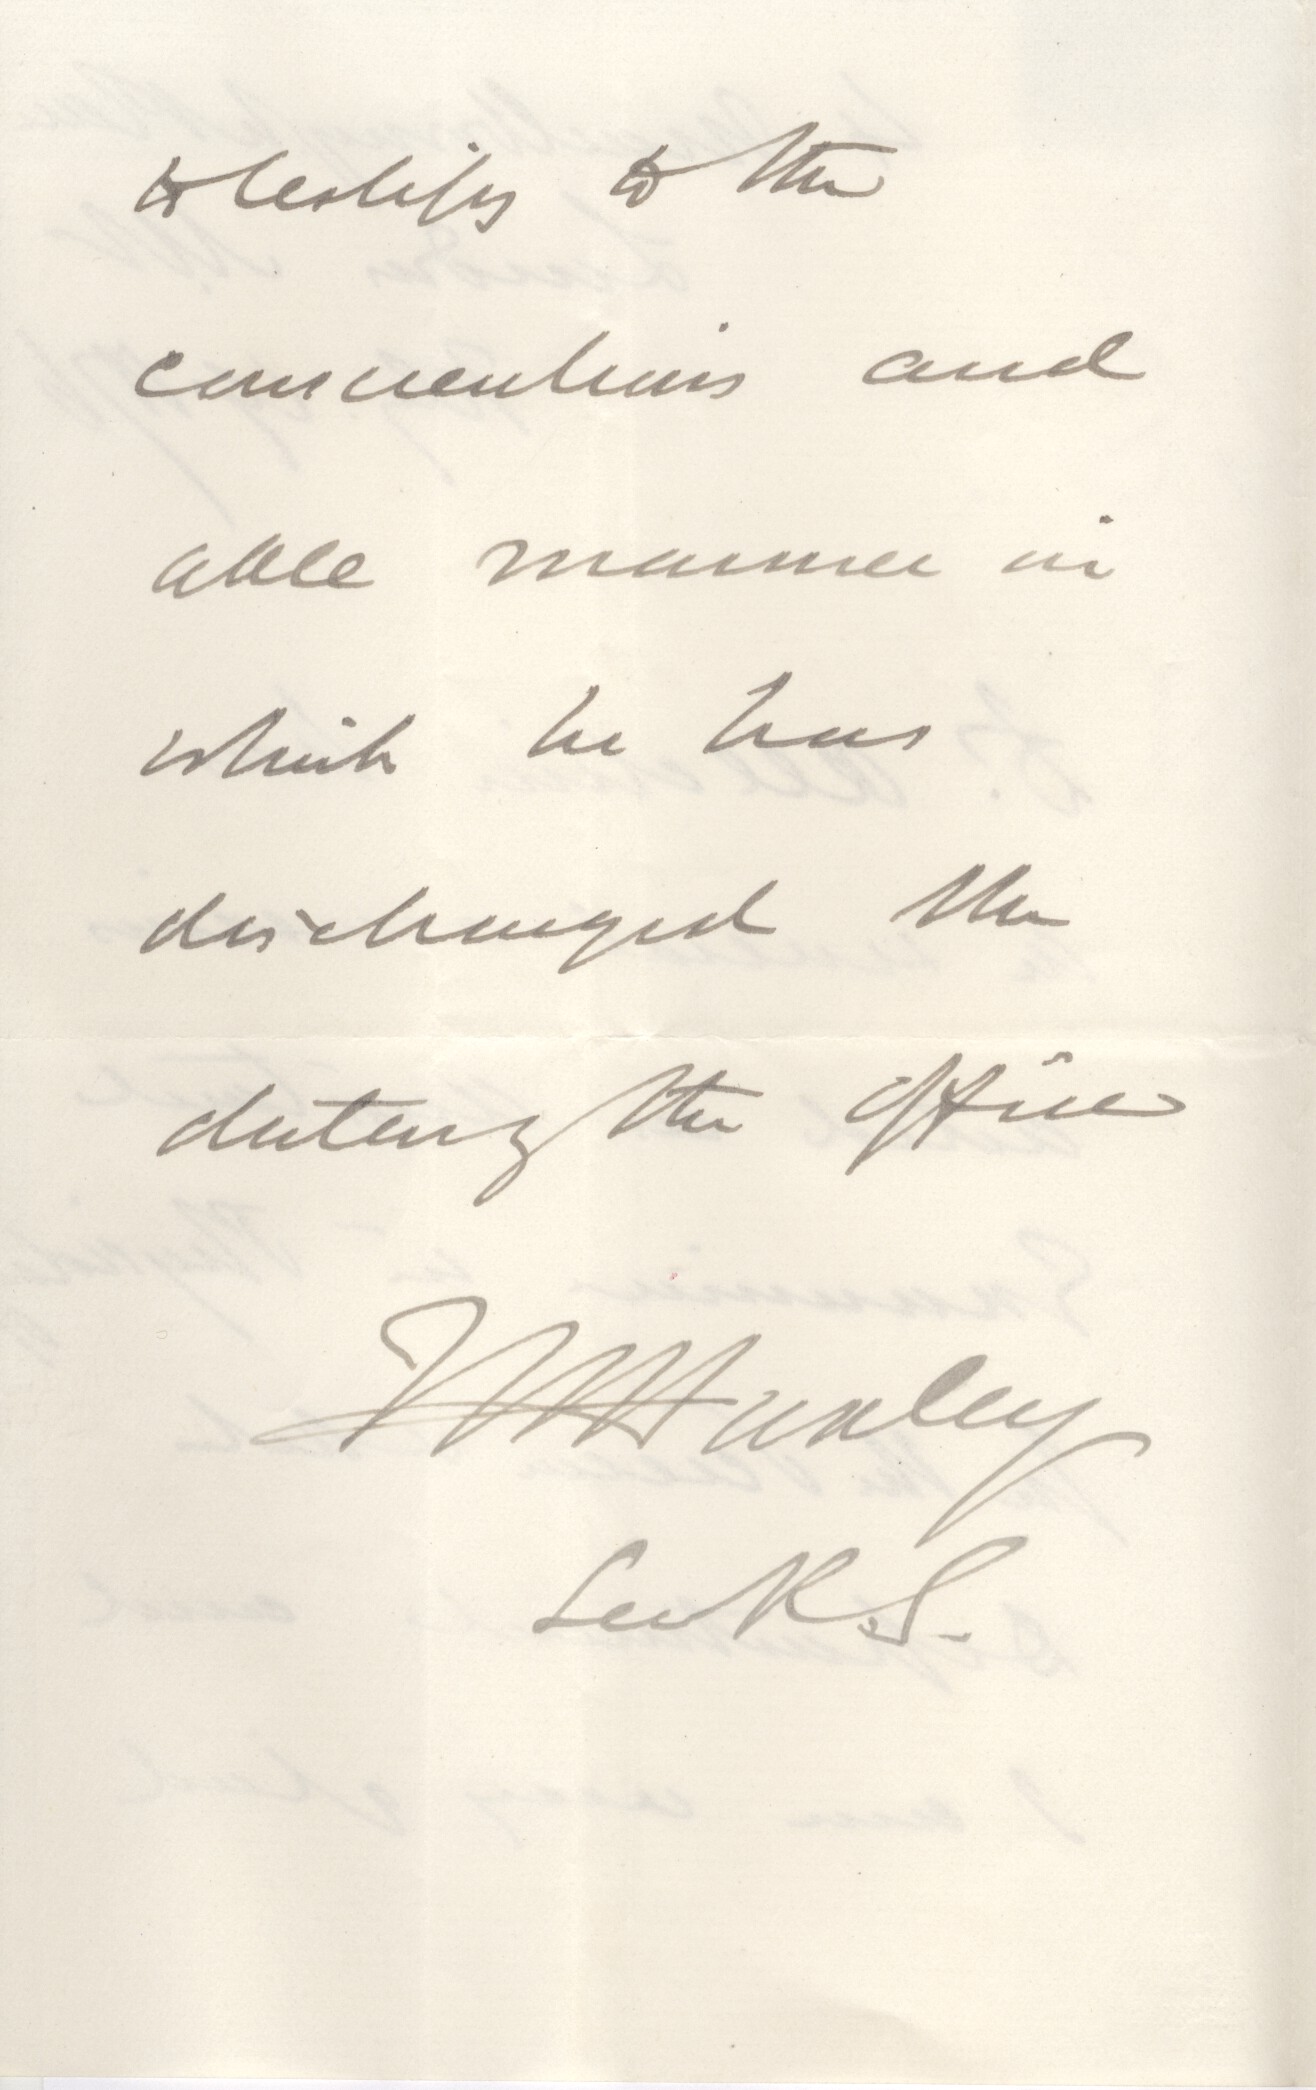 to testify to the
conscientious and
able manner in
which he has
discharged the
duties of the office
THHuxley
Sec R.S.